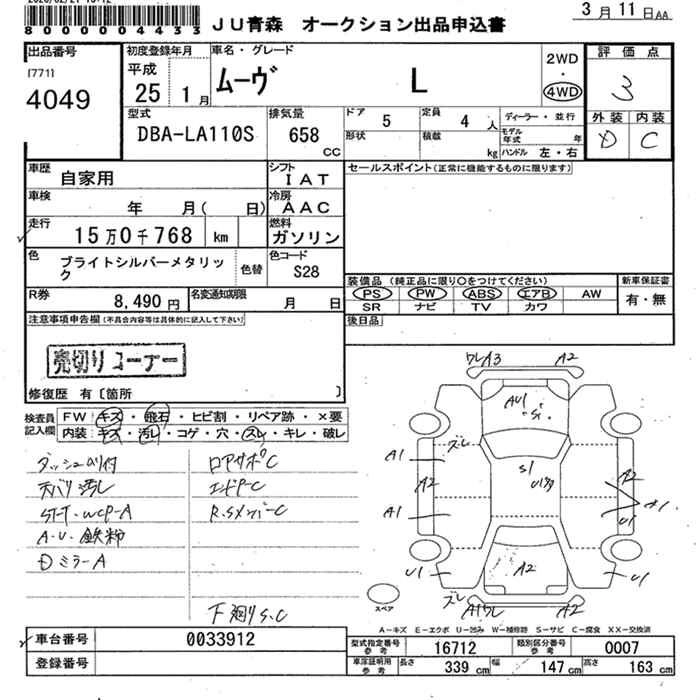 800000004433
JU青森 オークション出品申込書
3月11日AA
出品番号
[771]
4049
初度登録年月
平成
25 1月
車名・グレード
ムーヴ L
2WD
・
4WD
評価点
3
外装 内装
D C
型式
DBA-LA110S
排気量
658
CC
ドア 5
定員 4 人
形状
積載 kg
ディーラー・並行
モデル年式 年
ハンドル 左・右
車歴
自家用
シフト
IAT
車検
年 月( 日)
冷房
AAC
走行
15万0千768 km
燃料
ガソリン
色
ブライトシルバーメタリック
色替
色コード
S28
R券
8,490円
名変通知期限
月 日
セールスポイント(正常に機能するものに限ります)
装備品 (純正品に限り○をつけてください)
PS PW ABS エアB AW
SR ナビ TV カワ
新車保証書
有・無
後日品
注意事項申告欄(不具合内容等は具体的に記入して下さい)
売切りコーナー
修復歴 有〔箇所 〕
検査員
記入欄
FW キズ・飛石・ヒビ割・リペア跡・×要
内装 キズ・汚レ・コゲ・穴・スレ・キレ・破レ
天バリ汚レ
ST-T・WCP-A
A-U・鉄粉
Dミラー A
ロアサポC
エンドP-C
R.Sメンバ-C
下廻りS.C
ワレA3
A2
AU1
Si
ズレ
A1
S1
A2
A2
A1
U1
U1
A2
U1
ズレ
A1ワレ
A2
スペア
A-キズ E-エクボ U-凹み W-補修跡 S-サビ C-腐食 XX-交換済
車台番号
0033912
登録番号
型式指定番号
参考
16712
類別区分番号
参考
0007
車庫証明用
参考
長さ 339cm 幅 147cm 高さ 163cm